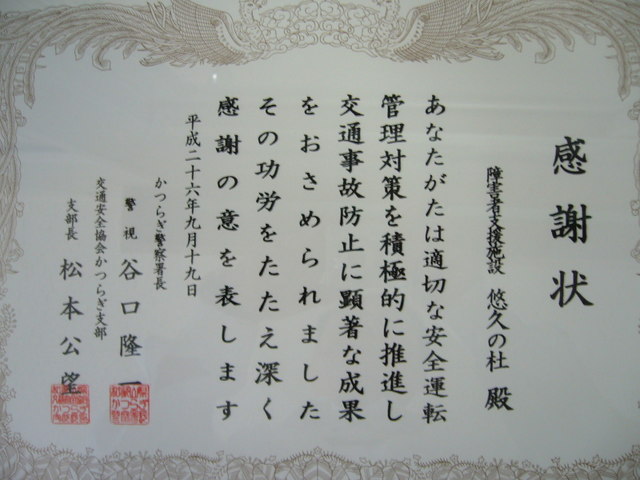 感謝状
障害者支援施設 悠久の杜 殿
あなたがたは適切な安全運転
管理対策を積極的に推進し
交通事故防止に顕著な成果
をおさめられました
その功労をたたえ深く
感謝の意を表します
平成二十六年九月十九日
かつらぎ警察署長
警視 谷口隆一
交通安全協会かつらぎ支部
支部長 松本公望